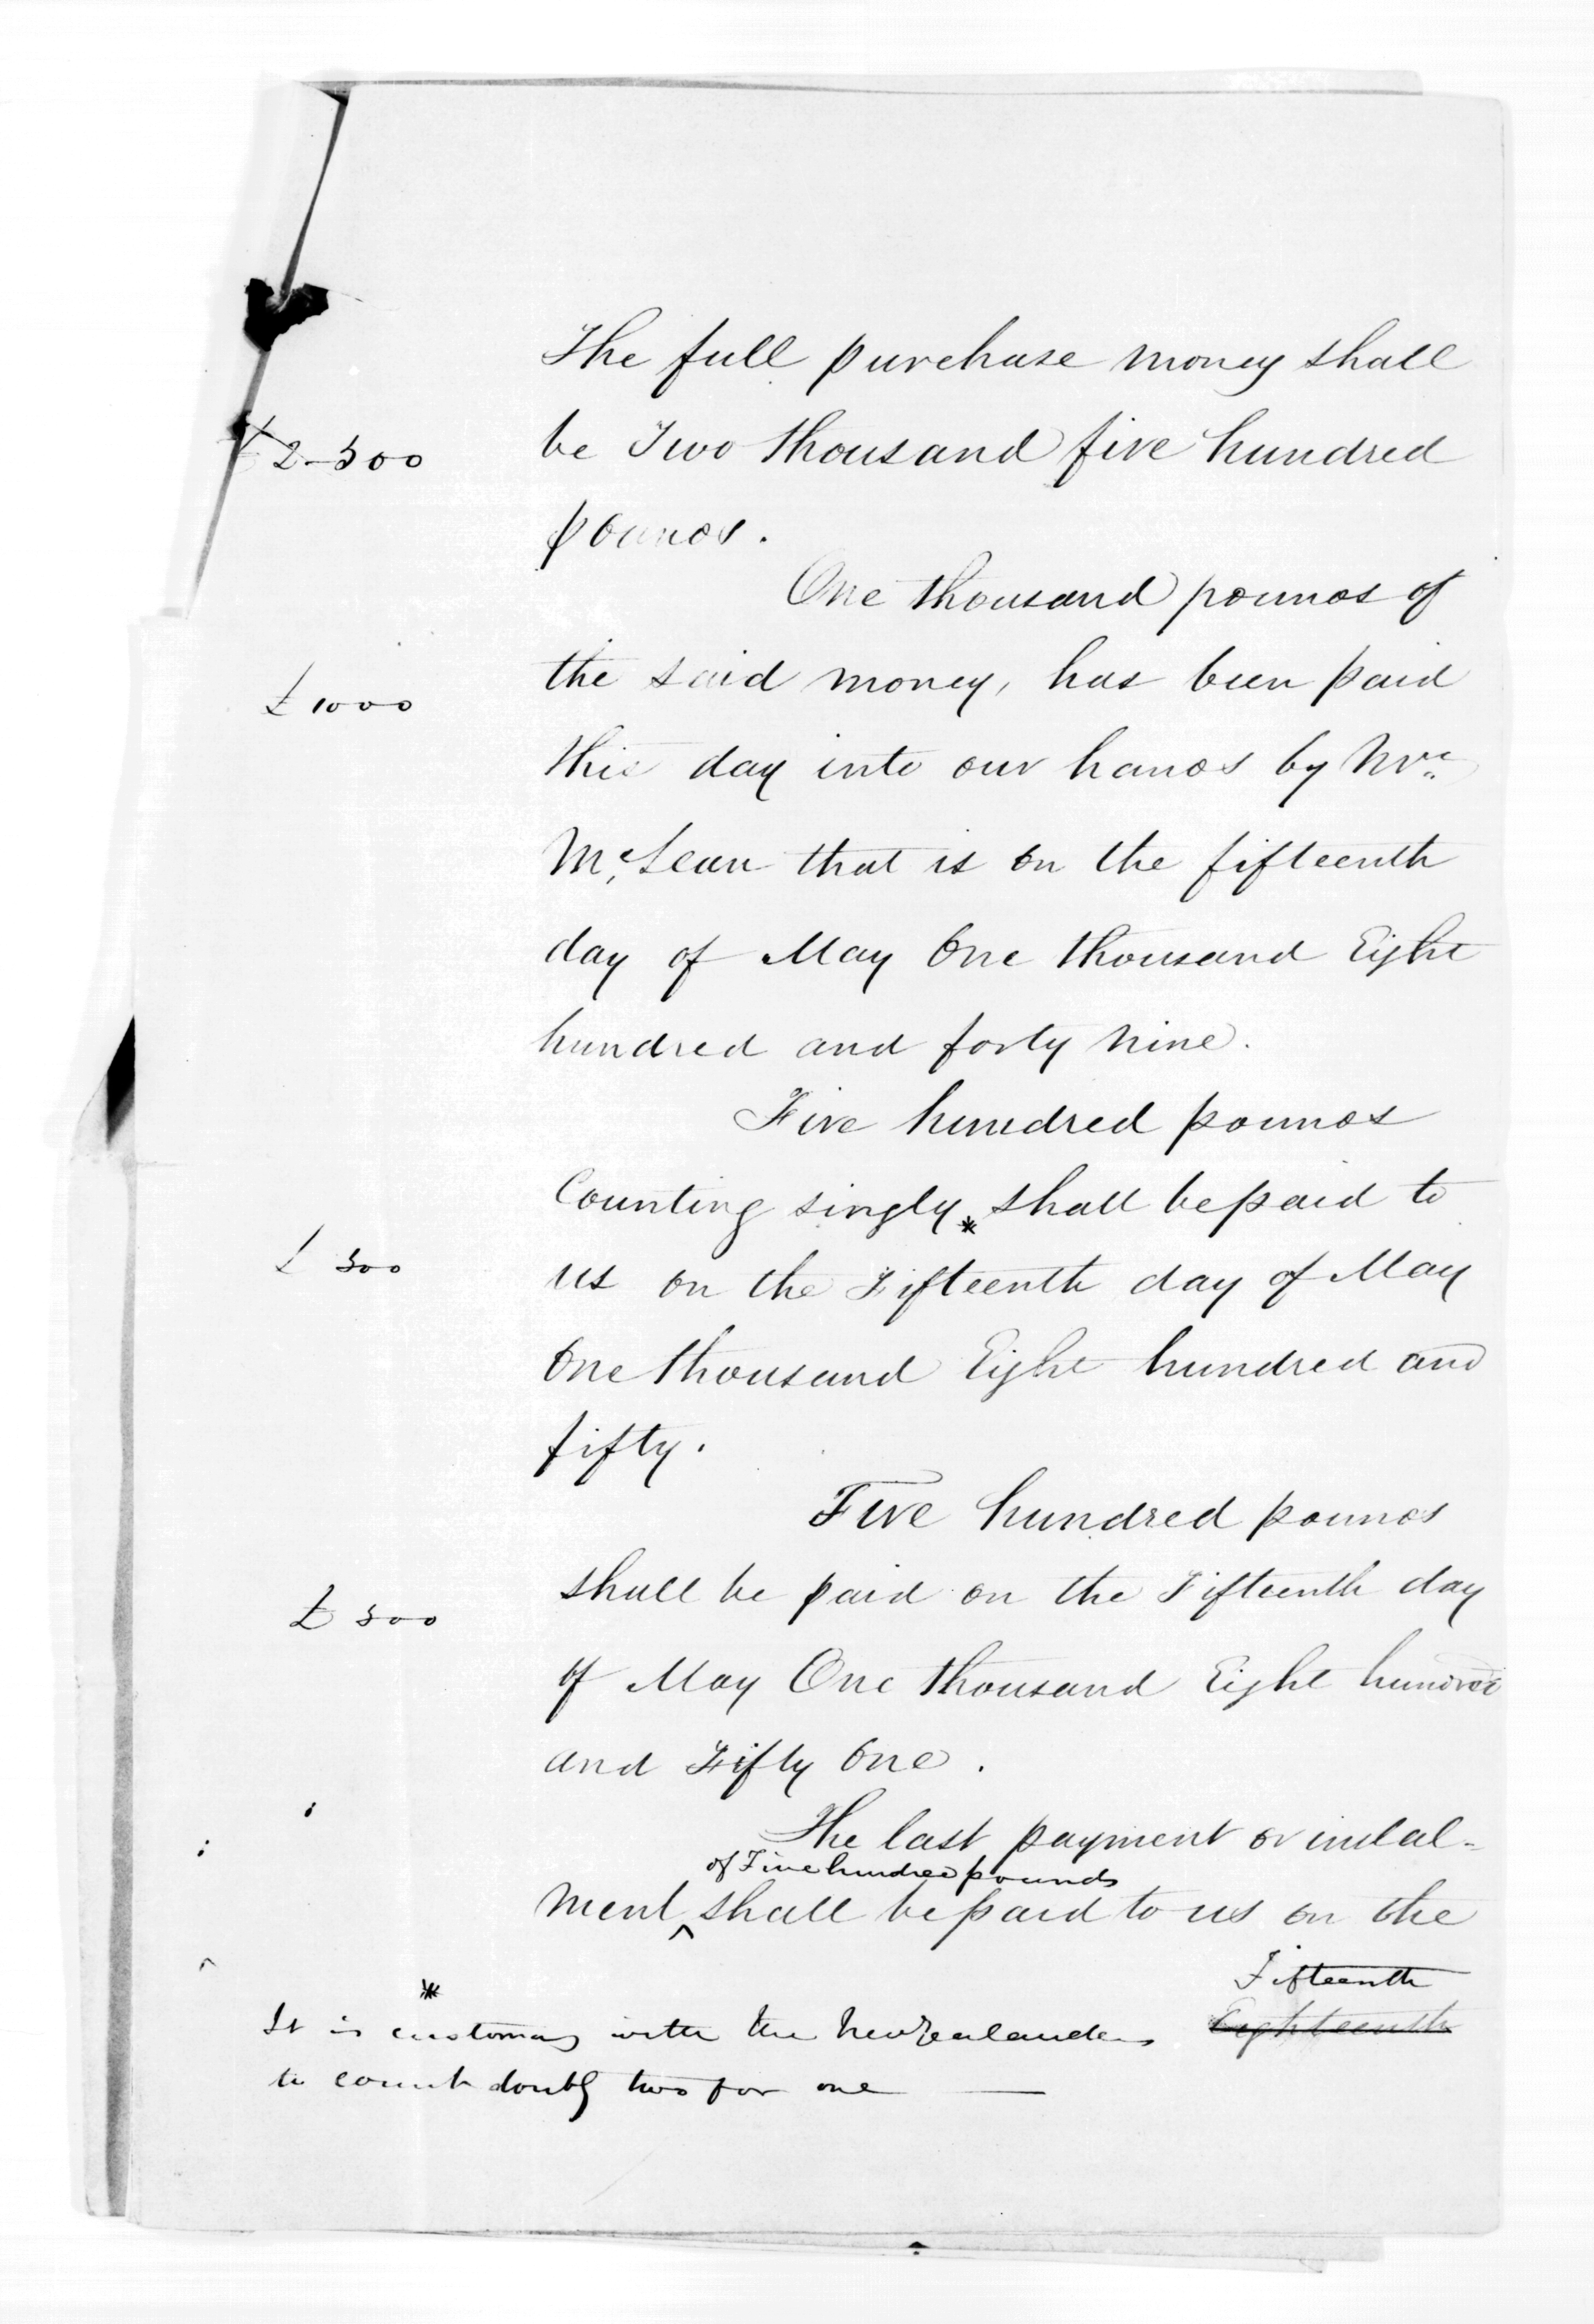 The full purchase money shall
£2-500
be Two thousand five hundred
pounds.
One thousand pounds of
£1000
the said money, has been paid
this day into our hands by Mr.
McLean that is on the fifteenth
day of May One thousand Eight
hundred and forty nine.
Five hundred pounds
Counting singly * shall be paid to
£ 500
us on the Fifteenth day of May
One thousand Eight hundred and
fifty.
Five hundred pounds
shall be paid on the Fifteenth day
£ 500
of May One thousand Eight hundred
and Fifty One.
The last payment or instal-
of Five hundred pounds
ment ^ shall be paid to us on the
Fifteenth
Eighteenth
*
It is customary with the New Zealanders
to count doubly two for one —